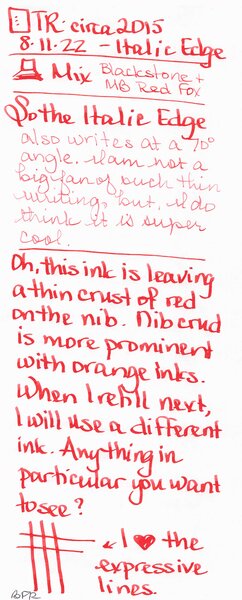 TR: circa 2015
8.11.22 - Italic Edge
Mix Blackstone +
MB Red Fox
So the Italic Edge
also writes at a 70°
angle. I am not a
big fan of such thin
writing, but, I do
think it is super
cool.
Oh, this ink is leaving
a thin crust of red
on the nib. Nib crud
is more prominent
with orange inks.
When I refill next,
I will use a different
ink. Anything in
particular you want
to see?
I ♥ the
expressive
lines.